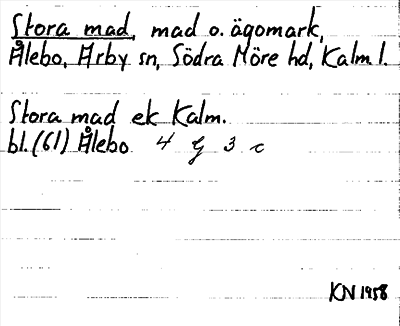 Stora mad, mad o. ägomark,
Ålebo, Arby sn, Södra Möre hd, Kalm l.
Stora mad ek Kalm.
bl. (61) Ålebo 4 G 3 c
KN 1958